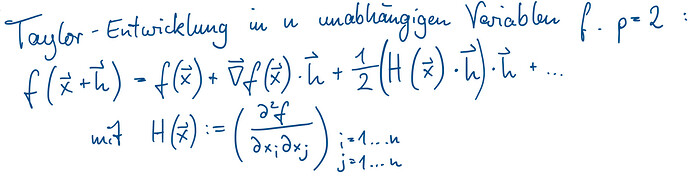 Taylor-Entwicklung in n unabhängigen Variablen f. p=2 :
f(x⃗+h⃗) = f(x⃗) + ∇⃗f(x⃗)·h⃗ + 1/2 (H(x⃗)·h⃗)·h⃗ + ...
mit H(x⃗) := (∂²f / ∂xᵢ∂xⱼ) i=1...n j=1...n